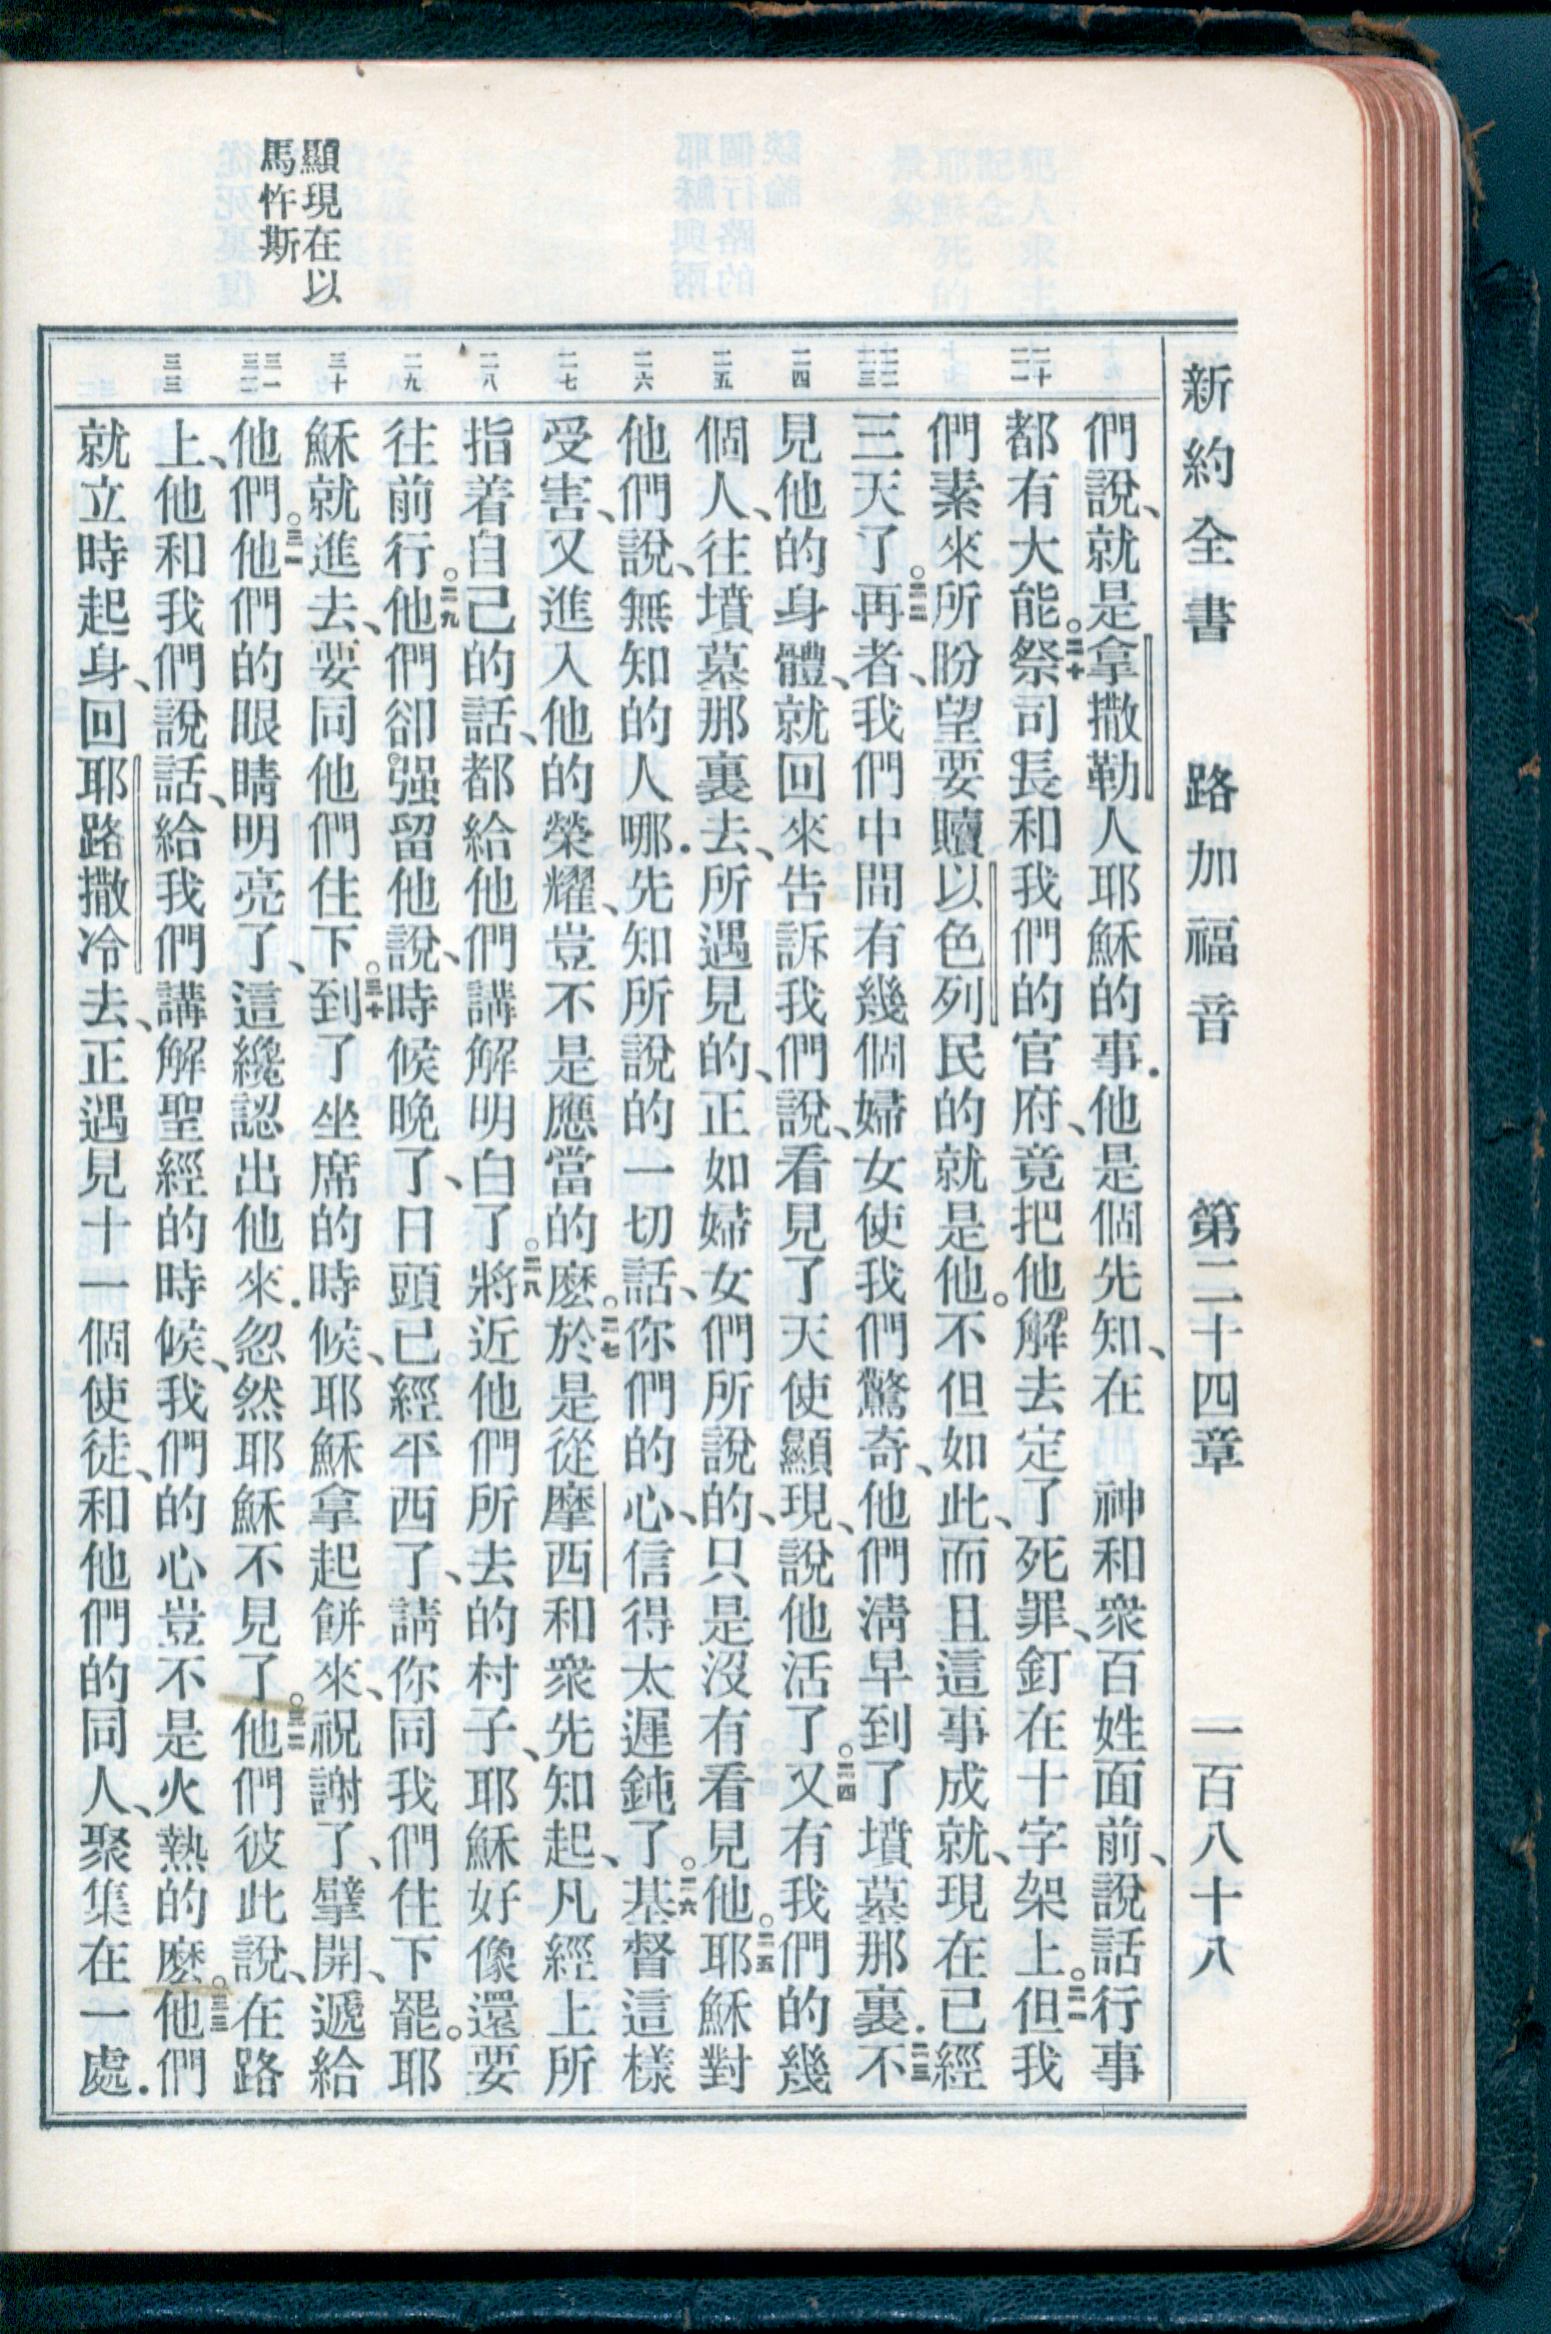 新約全書 路加福音 第二十四章 一百八十八
們說、就是拿撒勒人耶穌的事．他是個先知、在 神和衆百姓面前、說話行事
都有大能。二十祭司長和我們的官府、竟把他解去定了死罪、釘在十字架上。二一但我
們素來所盼望要贖以色列民的就是他。不但如此、而且這事成就、現在已經
三天了。二二再者、我們中間有幾個婦女使我們驚奇、他們淸早到了墳墓那裏．二三不
見他的身體、就回來告訴我們說、看見了天使顯現、說他活了。二四又有我們的幾
個人、往墳墓那裏去、所遇見的、正如婦女們所說的、只是沒有看見他。二五耶穌對
他們說、無知的人哪．先知所說的一切話、你們的心、信得太遲鈍了。二六基督這樣
受害、又進入他的榮耀、豈不是應當的麽。二七於是從摩西和衆先知起、凡經上所
指着自己的話、都給他們講解明白了。二八將近他們所去的村子、耶穌好像還要
往前行。二九他們卻强留他說、時候晚了、日頭已經平西了、請你同我們住下罷。耶
穌就進去、要同他們住下。三十到了坐席的時候、耶穌拿起餅來、祝謝了、擘開、遞給
他們。三一他們的眼睛明亮了、這纔認出他來．忽然耶穌不見了。三二他們彼此說、在路
上、他和我們說話、給我們講解聖經的時候、我們的心豈不是火熱的麽。三三他們
就立時起身、回耶路撒冷去、正遇見十一個使徒、和他們的同人、聚集在一處．
二十
二一
二二
二三
二四
二五
二六
二七
二八
二九
三十
三一
三二
三三
顯現在以
馬忤斯